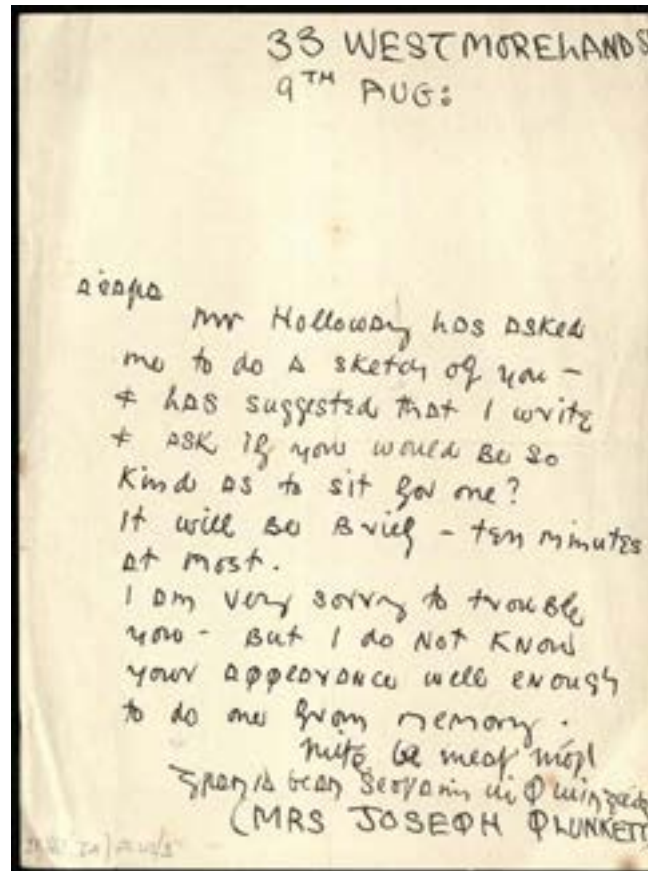 33 WESTMORELAND S
9TH AUG:
a ċara
Mr Holloway has asked
me to do a sketch of you –
+ has suggested that I write
+ ask if you would be so
kind as to sit for one?
It will be brief – ten minutes
at most.
I am very sorry to trouble
you – but I do not know
your appearance well enough
to do one from memory.
mise le meas mór
bean Seosaim
(MRS JOSEPH PLUNKETT